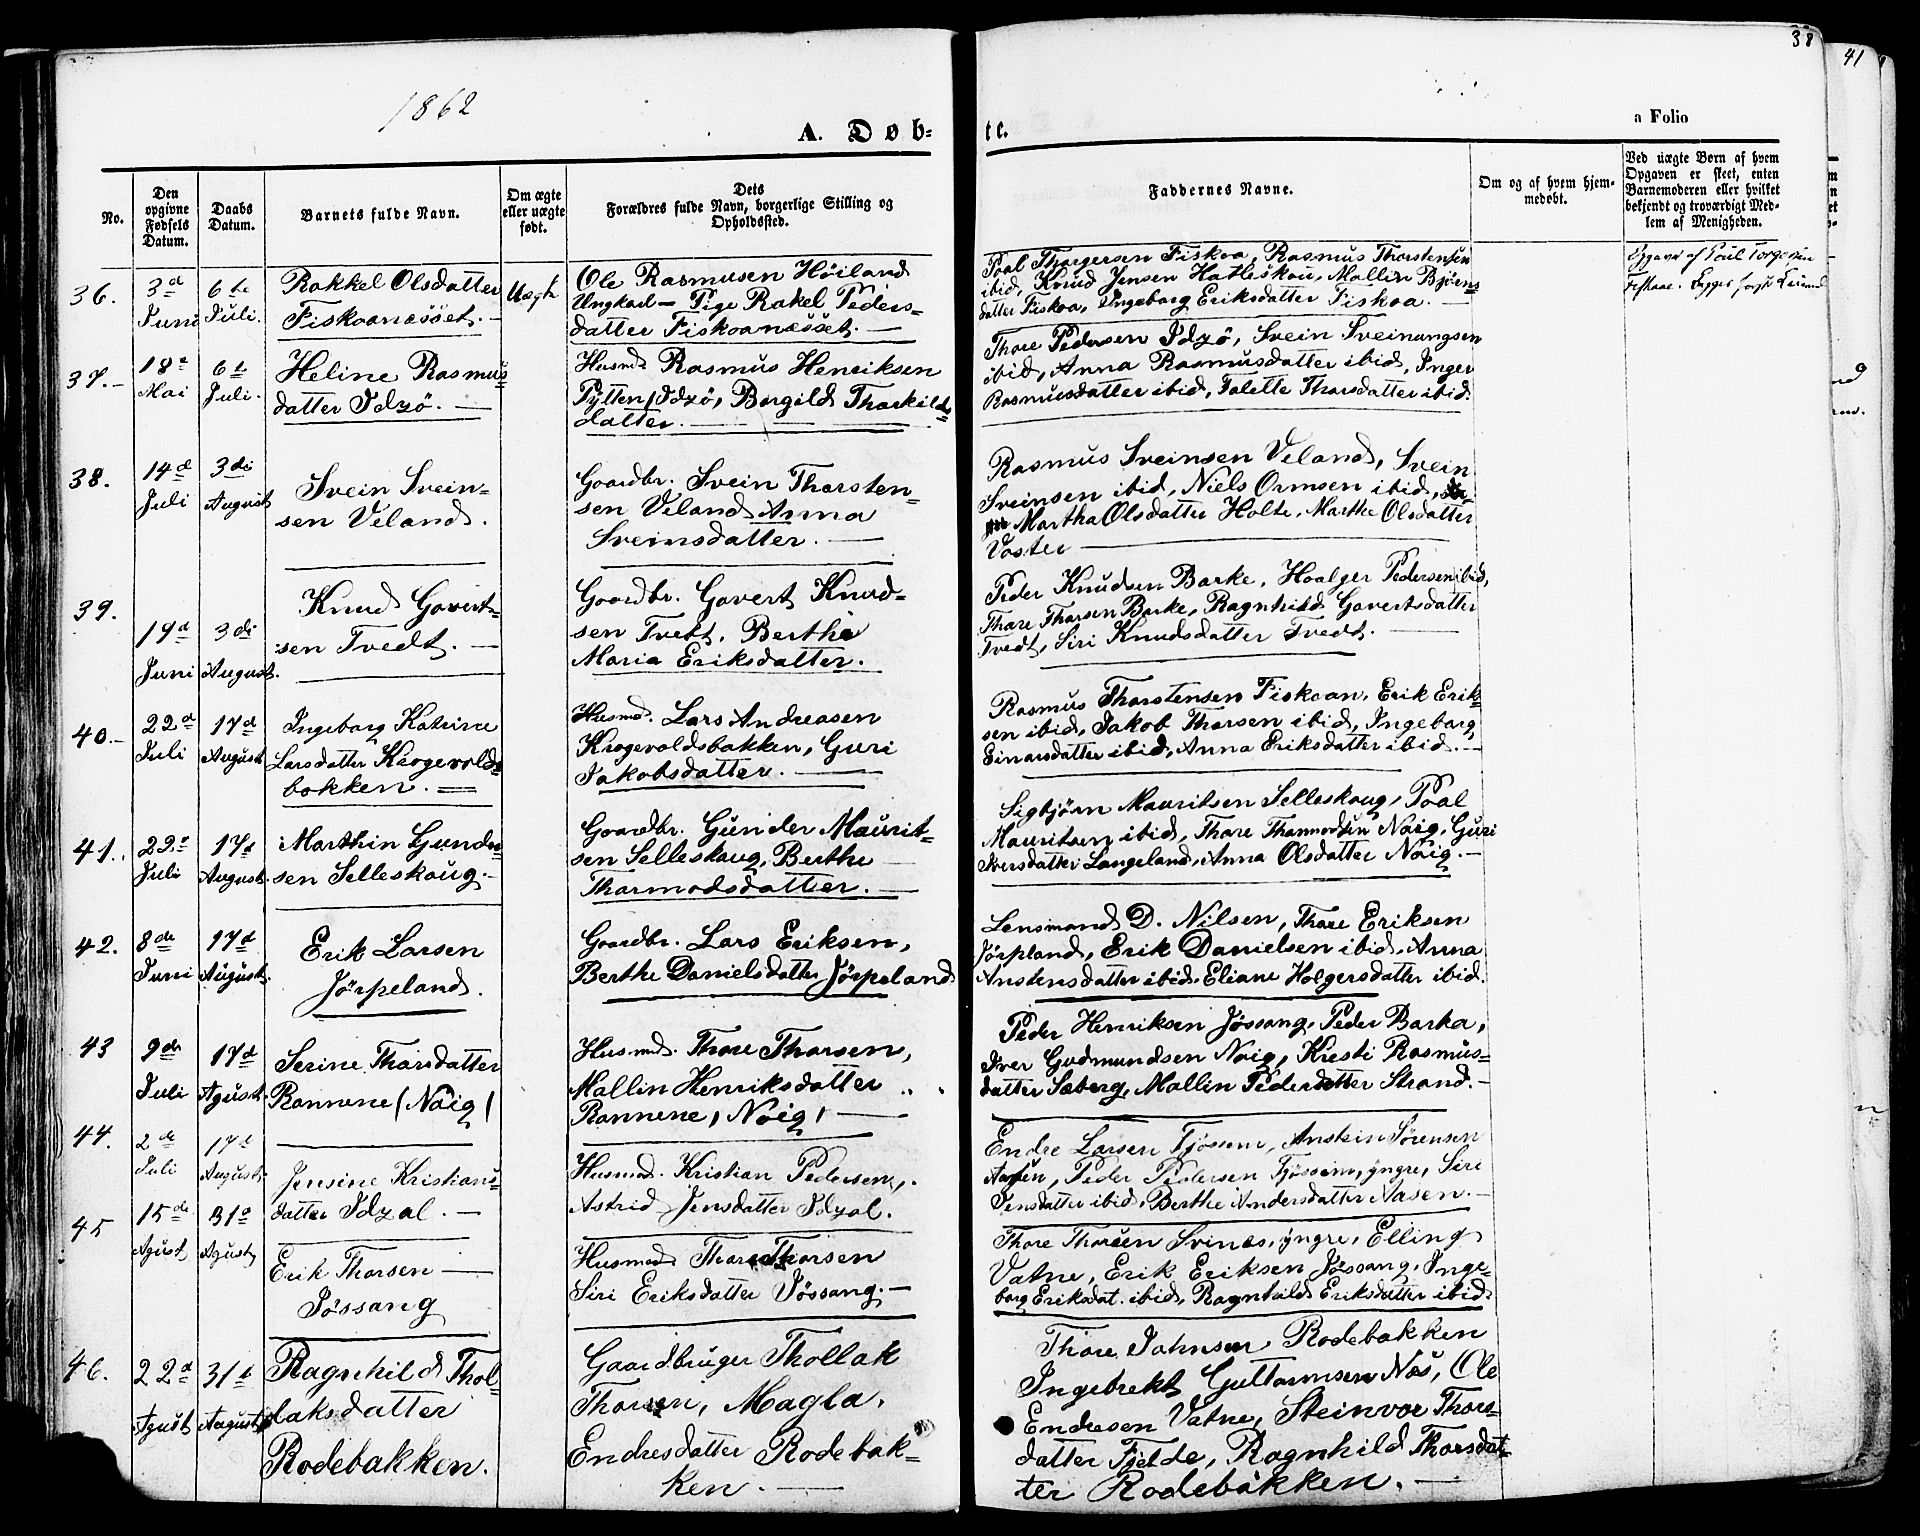 1862
A. Døb-
te.
a Folio
38
41
No.
Den opgivne Fødsels Datum.
Daabs Datum.
Barnets fulde Navn.
Om ægte eller uægte født.
Dets Forældres fulde Navn, borgerlige Stilling og Opholdssted.
Faddernes Navne.
Om og af hvem hjemmedøbt.
Ved uægte Børn af hvem Opgaven er skeet, enten Barnemoderen eller hvilket bekjendt og troværdigt Medlem af Menigheden.
36.
3d Juni
6te Juli.
Rakkel Olsdatter
Fiskaanæsset.
Uægte
Ole Rasmusen Höiland
Ungkarl – Pige Rakel Peders-
datter Fiskaanæsset. —
Paal Thorgersen Fiskaa, Rasmus Thorstensen
ibid, Knud Jensen Hatleskau, Mallin Bjørns-
datter Fiskaa, Ingeborg Eriksdatter Fiskaa. —
Opgavd af Poul Torgersen
Fiskaa.
37.-
18e Mai
6te Juli.
Heline Rasmus-
datter Idzö. —
Husmd Rasmus Henriksen
Pytten / Idzö, Borgild Thorkilds-
datter. —
Thore Pedersen Idzö, Svein Sveinungsen
ibid, Anna Rasmusdatter ibid, Inger
Rasmusdatter ibid, Talette Thorsdatter ibid.
38.
14d Juli
3di August
Svein Svein-
sen Veland.
Gaardbr. Svein Thorsten-
sen Veland, Anna
Sveinsdatter. —
Rasmus Sveinsen Veland, Svein
Sveinsen ibid, Niels Ormsen ibid,
Martha Olsdatter Holte, Marthe Olsdatter
Voster —
39.
19d Juni
3di August.
Knud Govert-
sen Tvedt. —
Gaardbr. Govert Knud-
sen Tvett, Berthe
Maria Eriksdatter.
Peder Knudsen Barke, Hoalger Pedersen ibid,
Thore Thorsen Barke, Ragnhild Govertsdatter
Tvedt, Siri Knudsdatter Tvedt. —
40.-
22d Juli
17d August
Ingeborg Katrine
Larsdatter Krogevolds-
bakken. =
Husmd. Lars Andreasen
Krogevoldsbakken, Guri
Jakobsdatter. —
Rasmus Thorstensen Fiskaan, Erik Erik-
sen ibid, Jakob Thorsen ibid, Ingeborg
Einarsdatter ibid, Anna Eriksdatter ibid. —
41.
22e Juli
17d August.
Marthin Gunder-
sen Selleskoug. -
Gaardbr. Gunder Maurit-
sen Selleskoug, Berthe —
Thormodsdatter. —
Sigbjörn Mauritsen Selleskoug, Poal
Mauritsen ibid, Thore Thormodsen Noig, Guri
Iversdatter Langeland, Anna Olsdatter Noig. —
42.
8de Juni
17d August.
Erik Larsen
Jörpeland.
Gaardbr. Lars Eriksen,
Berthe Danielsdatter Jörpeland
Lensmand D. Nilsen, Thore Eriksen
Jörpland, Erik Danielsen ibid, Anna
Anstensdatter ibid. Eliane Holgersdatter ibid.
43
9de Juli
17d Agust.
Serine Thorsdatter
Rannene (Noig)
Husmd. Thore Thorsen,
Mallin Henriksdatter
Rannene, (Noig) —
Peder Henriksen Jössang, Peder Barka,
Iver Gudmundsen Noig, Kresti Rasmus-
datter Soeberg, Mallin Pedersdatter Strand. —
44.
2de Juli
17d August.
Jensine Kristians-
datter Idzal. —
Husmd. Kristian Pedersen,
Astrid Jensdatter Idzal.
Endre Larsen Tjössem, Anstein Sörensen
Aasen, Peder Pedersen Tjössem, yngre, Siri
Jensdatter ibid, Berthe Andersdatter Aasen. —
45
15de Agust
31d Agust
Erik Thorsen —
Jössang
Husmd Thore Thorsen
Siri Eriksdatter Jössang. —
Thore Thorsen Svines, yngre, Elling
Vatne, Erik Eriksen Jössang, Inge-
borg Eriksdat. ibid, Ragnhild Eriksdatter ibid
46.
22d Agust
31d August
Ragnhild Thol-
laksdatter
Rodebakken.
Gaardbruger Thollak
Thorsen, Magla
Endresdatter Rodebak-
ken. —
Thore Johnsen Rodebakken
Ingebrekt Guttormsen Nos, Ole
Endresen Vatne, Steinvor Thors-
datter Fjelde, Ragnhild Thorsdat-
ter Rodebakken. —